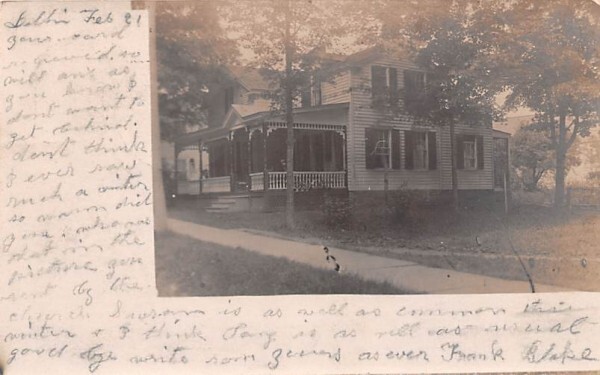 Feb 21
your card
received so
will ans as
you know I
dont want to
get behind.
dont think
I ever saw
such a winter
so warm did
you. whose
that in the
picture you
sent by the
church Susan is as well as common this
winter & I think Lary is as well as usual
good bye write soon yours as ever Frank Blake